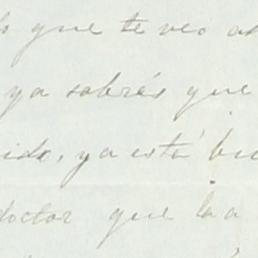 que te veo
ya sabrés que
ido, ya está
doctor que la a